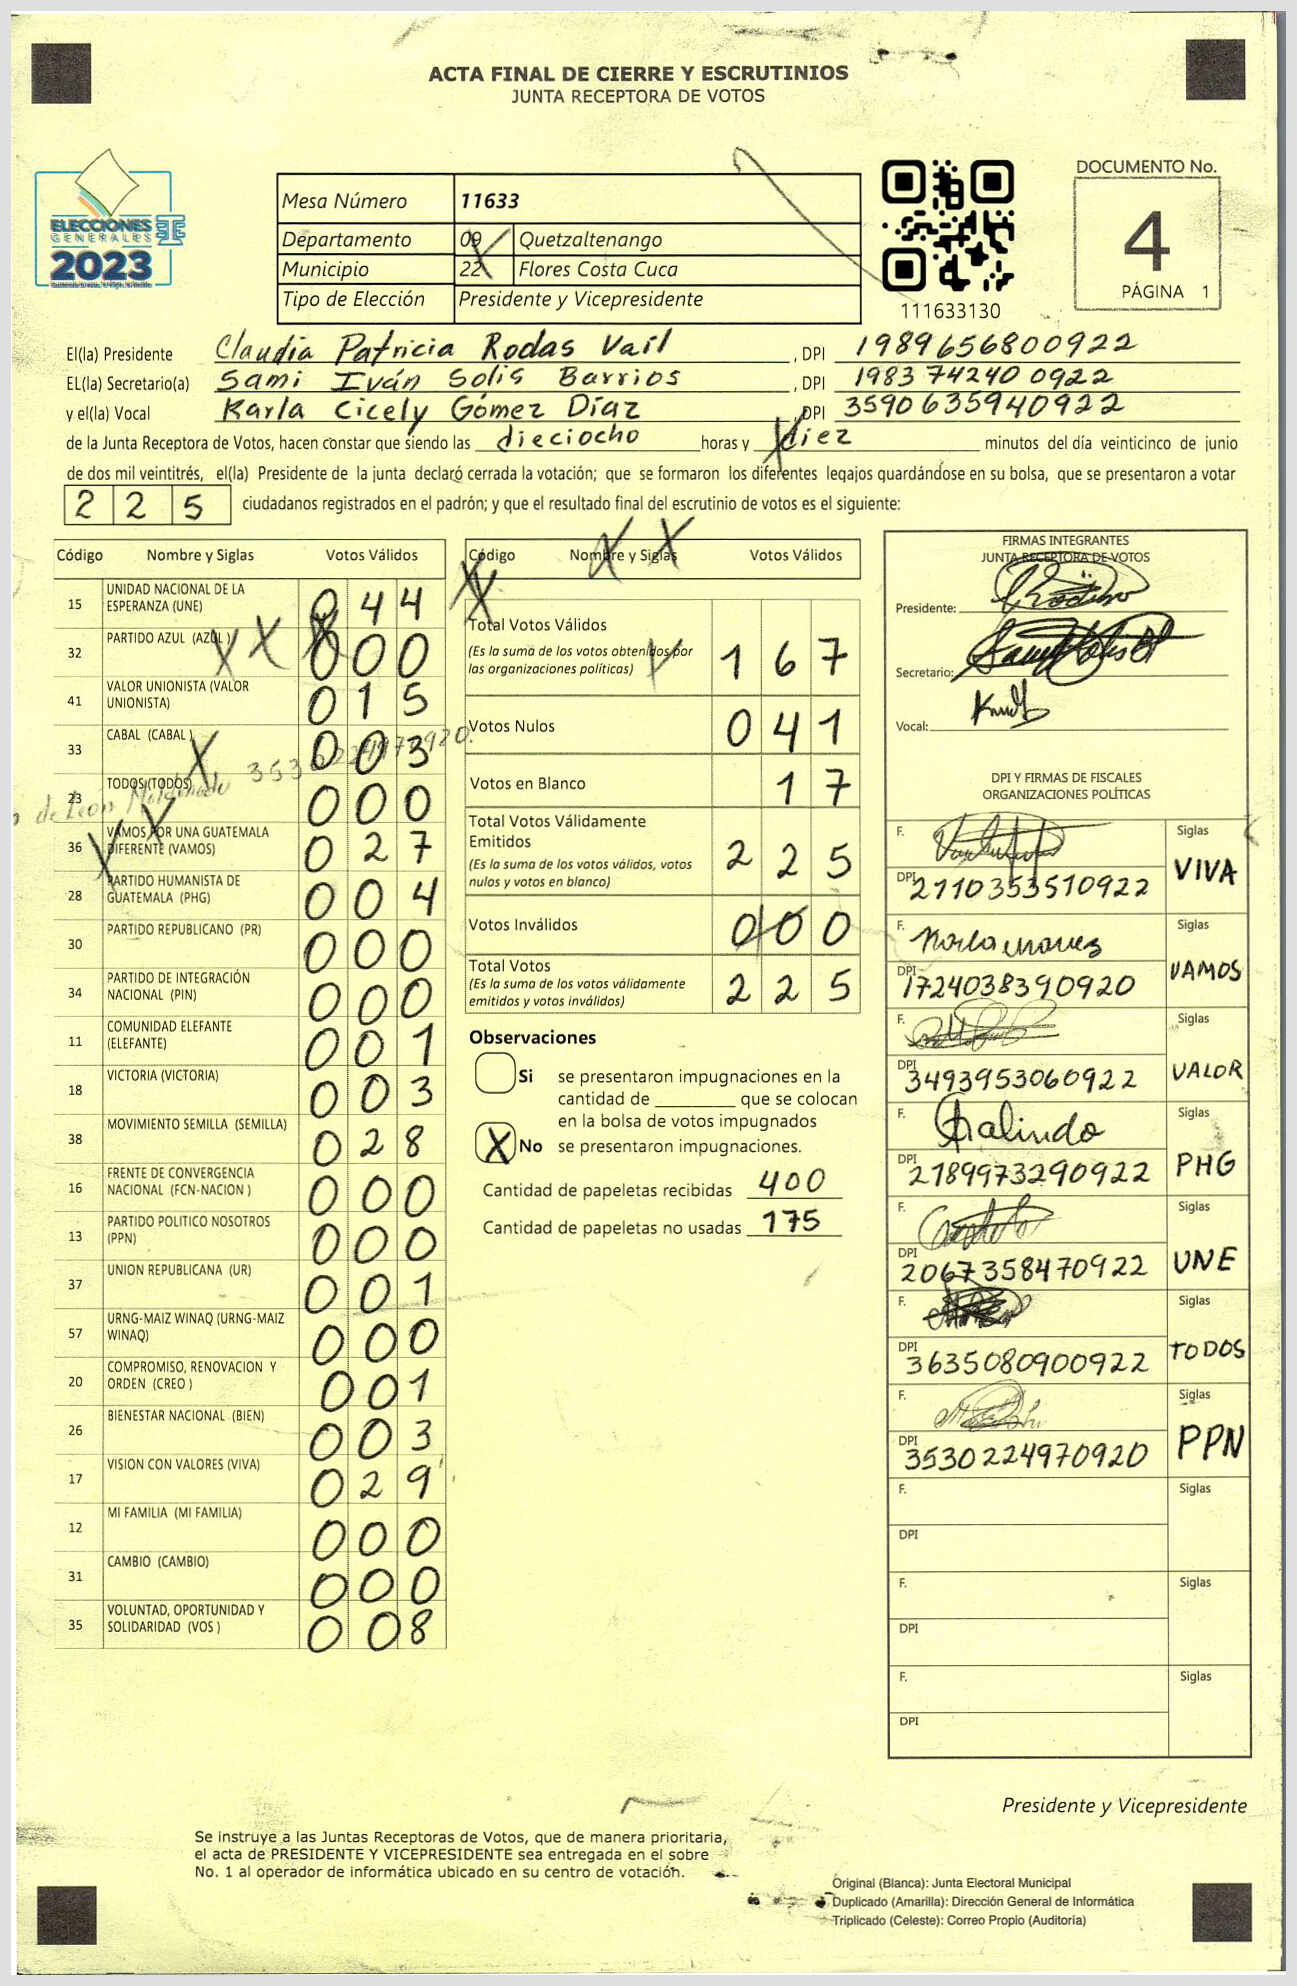 ACTA FINAL DE CIERRE Y ESCRUTINIOS
JUNTA RECEPTORA DE VOTOS
ELECCIONES
GENERALES
2023
Mesa Número 11633
Departamento 09 Quetzaltenango
Municipio 22 Flores Costa Cuca
Tipo de Elección Presidente y Vicepresidente
111633130
DOCUMENTO No.
4
PÁGINA 1
El(la) Presidente Claudia Patricia Rodas Vail , DPI 1989656800922
EL(la) Secretario(a) Sami Iván Solis Barrios , DPI 1983742400922
y el(la) Vocal Karla Cicely Gómez Díaz , DPI 3590635940922
de la Junta Receptora de Votos, hacen constar que siendo las dieciocho horas y diez minutos del día veinticinco de junio
de dos mil veintitrés, el(la) Presidente de la junta declaró cerrada la votación; que se formaron los diferentes legajos guardándose en su bolsa, que se presentaron a votar
225 ciudadanos registrados en el padrón; y que el resultado final del escrutinio de votos es el siguiente:
Código Nombre y Siglas Votos Válidos
15 UNIDAD NACIONAL DE LA ESPERANZA (UNE) 044
32 PARTIDO AZUL (AZUL) 000
41 VALOR UNIONISTA (VALOR UNIONISTA) 015
33 CABAL (CABAL) 003
23 TODOS (TODOS) 000
36 VAMOS POR UNA GUATEMALA DIFERENTE (VAMOS) 027
28 PARTIDO HUMANISTA DE GUATEMALA (PHG) 004
30 PARTIDO REPUBLICANO (PR) 000
34 PARTIDO DE INTEGRACIÓN NACIONAL (PIN) 000
11 COMUNIDAD ELEFANTE (ELEFANTE) 001
18 VICTORIA (VICTORIA) 003
38 MOVIMIENTO SEMILLA (SEMILLA) 028
16 FRENTE DE CONVERGENCIA NACIONAL (FCN-NACION ) 000
13 PARTIDO POLITICO NOSOTROS (PPN) 000
37 UNION REPUBLICANA (UR) 001
57 URNG-MAIZ WINAQ (URNG-MAIZ WINAQ) 000
20 COMPROMISO, RENOVACION Y ORDEN (CREO ) 001
26 BIENESTAR NACIONAL (BIEN) 003
17 VISION CON VALORES (VIVA) 029
12 MI FAMILIA (MI FAMILIA) 000
31 CAMBIO (CAMBIO) 000
35 VOLUNTAD, OPORTUNIDAD Y SOLIDARIDAD (VOS ) 008
Código Nombre y Siglas Votos Válidos
Total Votos Válidos
(Es la suma de los votos obtenidos por las organizaciones políticas) 167
Votos Nulos 041
Votos en Blanco 17
Total Votos Válidamente Emitidos
(Es la suma de los votos válidos, votos nulos y votos en blanco) 225
Votos Inválidos 000
Total Votos
(Es la suma de los votos válidamente emitidos y votos inválidos) 225
Observaciones
Si se presentaron impugnaciones en la
cantidad de ________ que se colocan
en la bolsa de votos impugnados
X No se presentaron impugnaciones.
Cantidad de papeletas recibidas 400
Cantidad de papeletas no usadas 175
FIRMAS INTEGRANTES
JUNTA RECEPTORA DE VOTOS
Presidente:
Secretario:
Vocal:
DPI Y FIRMAS DE FISCALES
ORGANIZACIONES POLÍTICAS
F. Siglas
DPI 2110353510922 VIVA
F. Siglas
DPI 1724038390920 VAMOS
F. Siglas
DPI 3493953060922 VALOR
F. Galindo Siglas
DPI 2189973290922 PHG
F. Siglas
DPI 2067358470922 UNE
F. Siglas
DPI 3635080900922 TODOS
F. Siglas
DPI 3530224970920 PPN
F. Siglas
DPI
F. Siglas
DPI
F. Siglas
DPI
Presidente y Vicepresidente
Se instruye a las Juntas Receptoras de Votos, que de manera prioritaria,
el acta de PRESIDENTE Y VICEPRESIDENTE sea entregada en el sobre
No. 1 al operador de informática ubicado en su centro de votación.
Original (Blanca): Junta Electoral Municipal
Duplicado (Amarilla): Dirección General de Informática
Triplicado (Celeste): Correo Propio (Auditoria)